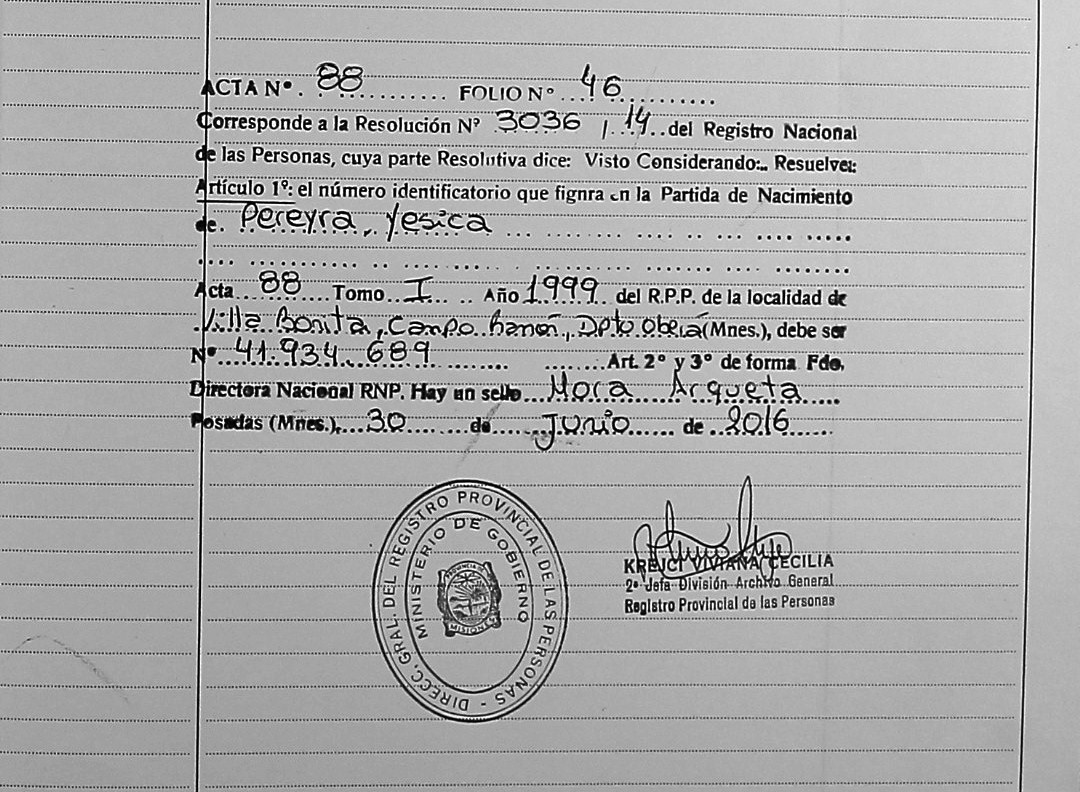 ACTA Nº. 88 FOLIO Nº 46
Corresponde a la Resolución Nº 3036 / 14 del Registro Nacional
de las Personas, cuya parte Resolutiva dice: Visto Considerando: Resuelve:
Artículo 1º: el número identificatorio que figura en la Partida de Nacimiento
de. Pereyra, Yesica
Acta 88 Tomo I Año 1999 del R.P.P. de la localidad de
Villa Bonita, Campo Ramón, Dpto Oberá (Mnes.), debe ser
Nº 41.934.689 Art. 2º y 3º de forma Fdo.
Directora Nacional RNP. Hay un sello Mora Arqueta
Posadas (Mnes.), 30 de Junio de 2016
DIRECC. GRAL. DEL REGISTRO PROVINCIAL DE LAS PERSONAS -
MINISTERIO DE GOBIERNO
PROVINCIA DE
MISIONES
KREJCI VIVIANA CECILIA
2º Jefa División Archivo General
Registro Provincial de las Personas